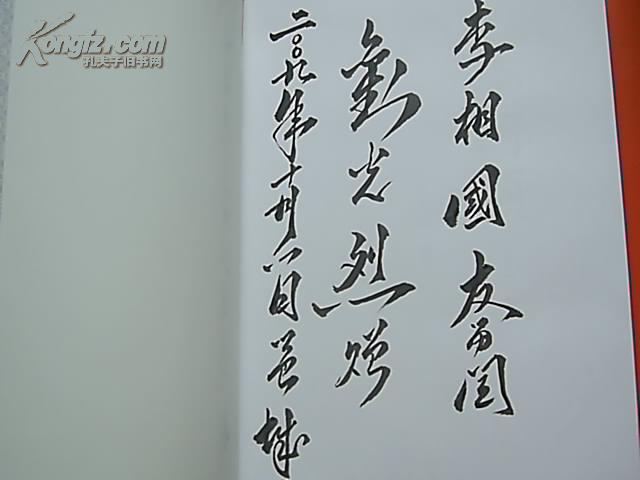 李相國友留閱
劉光烈贈
二〇〇九年十月八日蓉城
Kongfz.com
孔夫子旧书网